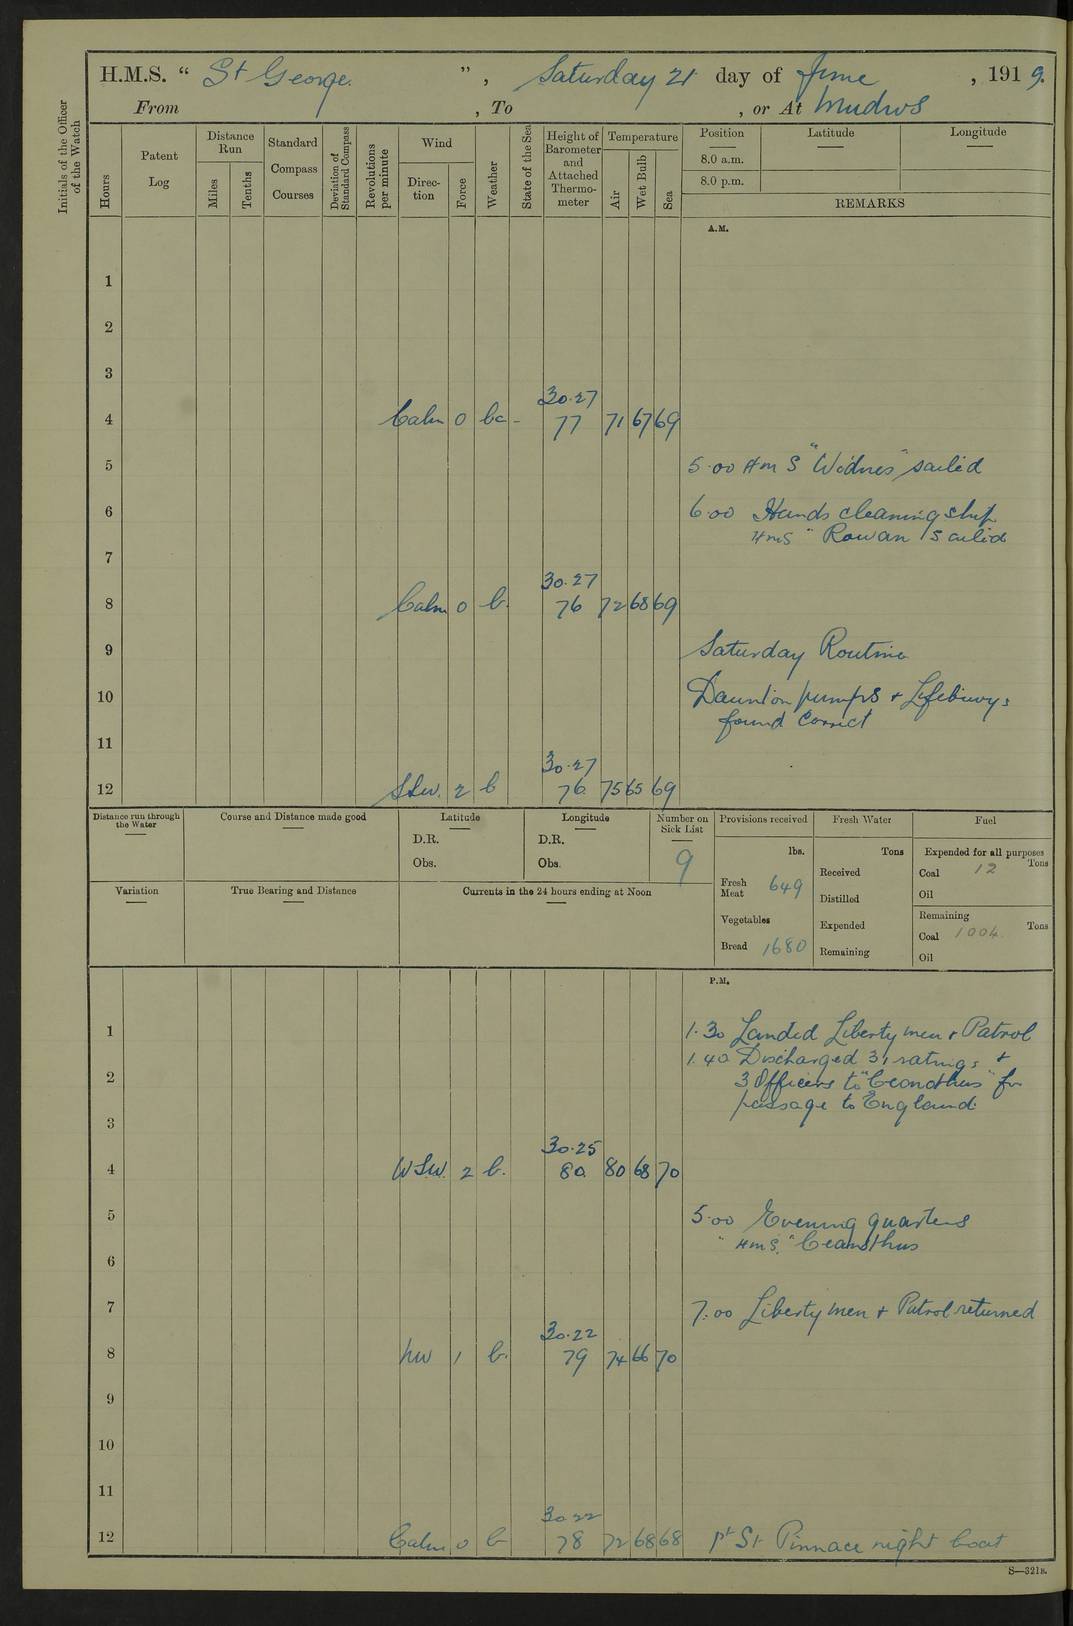 H.M.S. “ St George. ” , Saturday 21 day of June , 191 9.
From , To , or At Mudros
Initials of the Officer of the Watch
Hours
Patent Log
Distance Run
Miles
Tenths
Standard Compass Courses
Deviation of Standard Compass
Revolutions per minute
Wind
Direc-tion
Force
Weather
State of the Sea
Height of Barometer and Attached Thermo-meter
Temperature
Air
Wet Bulb
Sea
Position Latitude Longitude
8.0 a.m.
8.0 p.m.
REMARKS
A.M.
1
2
3
30.27
4 Calm 0 bc - 77 71 67 69
5 5.00 HMS "Widnes" sailed
6 6.00 Hands cleaning ship
HMS " Rowan sailed
7
30.27
8 Calm 0 b. 76 72 68 69
9 Saturday Routine
10 Daunton pumps + Lifebuoys
found correct
11
30.27
12 2 b 76 75 65 69
Distance run through the Water
Course and Distance made good
Latitude
D.R.
Obs.
Longitude
D.R.
Obs.
Number on Sick List
9
Provisions received
lbs.
Fresh Meat 649
Vegetables
Bread 1680
Fresh Water
Tons
Received
Distilled
Expended
Remaining
Fuel
Expended for all purposes
Coal 12 Tons
Oil
Remaining
Coal 1004 Tons
Oil
Variation
True Bearing and Distance
Currents in the 24 hours ending at Noon
P.M.
1 1.30 Landed Liberty men + Patrol
1.40 Discharged 31 ratings +
2 3 Officers to "Ceanothus" for
passage to England
3
30.25
4 WSW. 2 b. 80 80 68 70
5 5.00 Evening quarters
" HMS. "Ceanothus
6
7 7.00 Liberty men + Patrol returned
30.22
8 NW 1 b. 79 74 66 70
9
10
11
30 22
12 Calm 0 b 78 72 68 68 Pt St Pinnace night boat
S—321B.